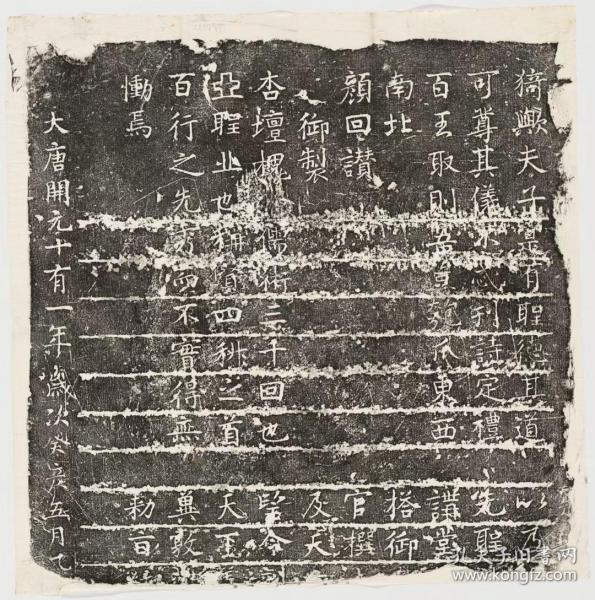 猗歟夫子寔有聖德其道
可尊其儀不忒刊詩定禮 先聖
百王取則吾豈匏瓜東西 講堂
南北 搭御
顏回讃 官撰
御製 及天
杏壇槐 儒術三千回也 望令
亞聖丘也稱賢四科之首 天王
百行之先 而不實得無 冀敦
慟焉 勑旨
大唐開元十有一年歲次癸亥五月
孔夫子旧书网
www.kongfz.com